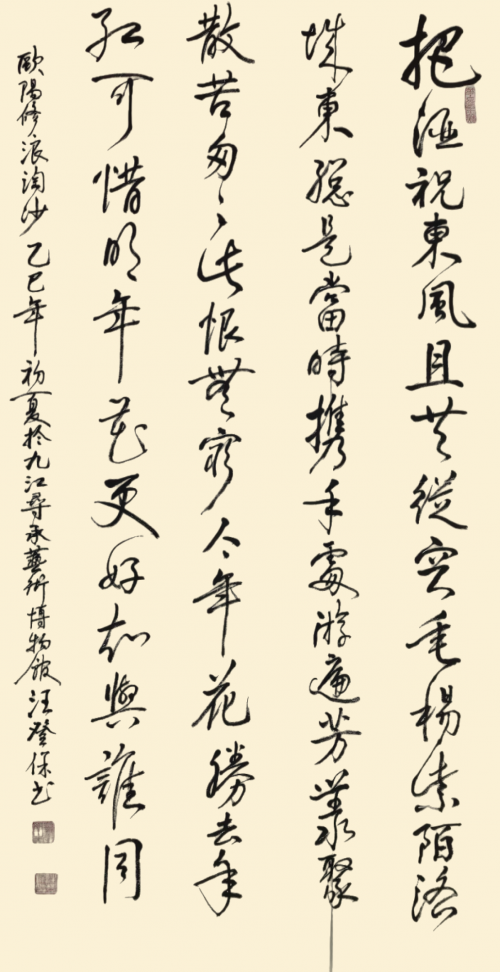 把酒祝東風且共從容垂楊紫陌洛
城東總是當時携手處游遍芳叢聚
散苦匆匆此恨無窮今年花勝去年
紅可惜明年花更好知與誰同
歐陽修浪淘沙乙巳年初夏於九江尋承藝術博物館汪登保书